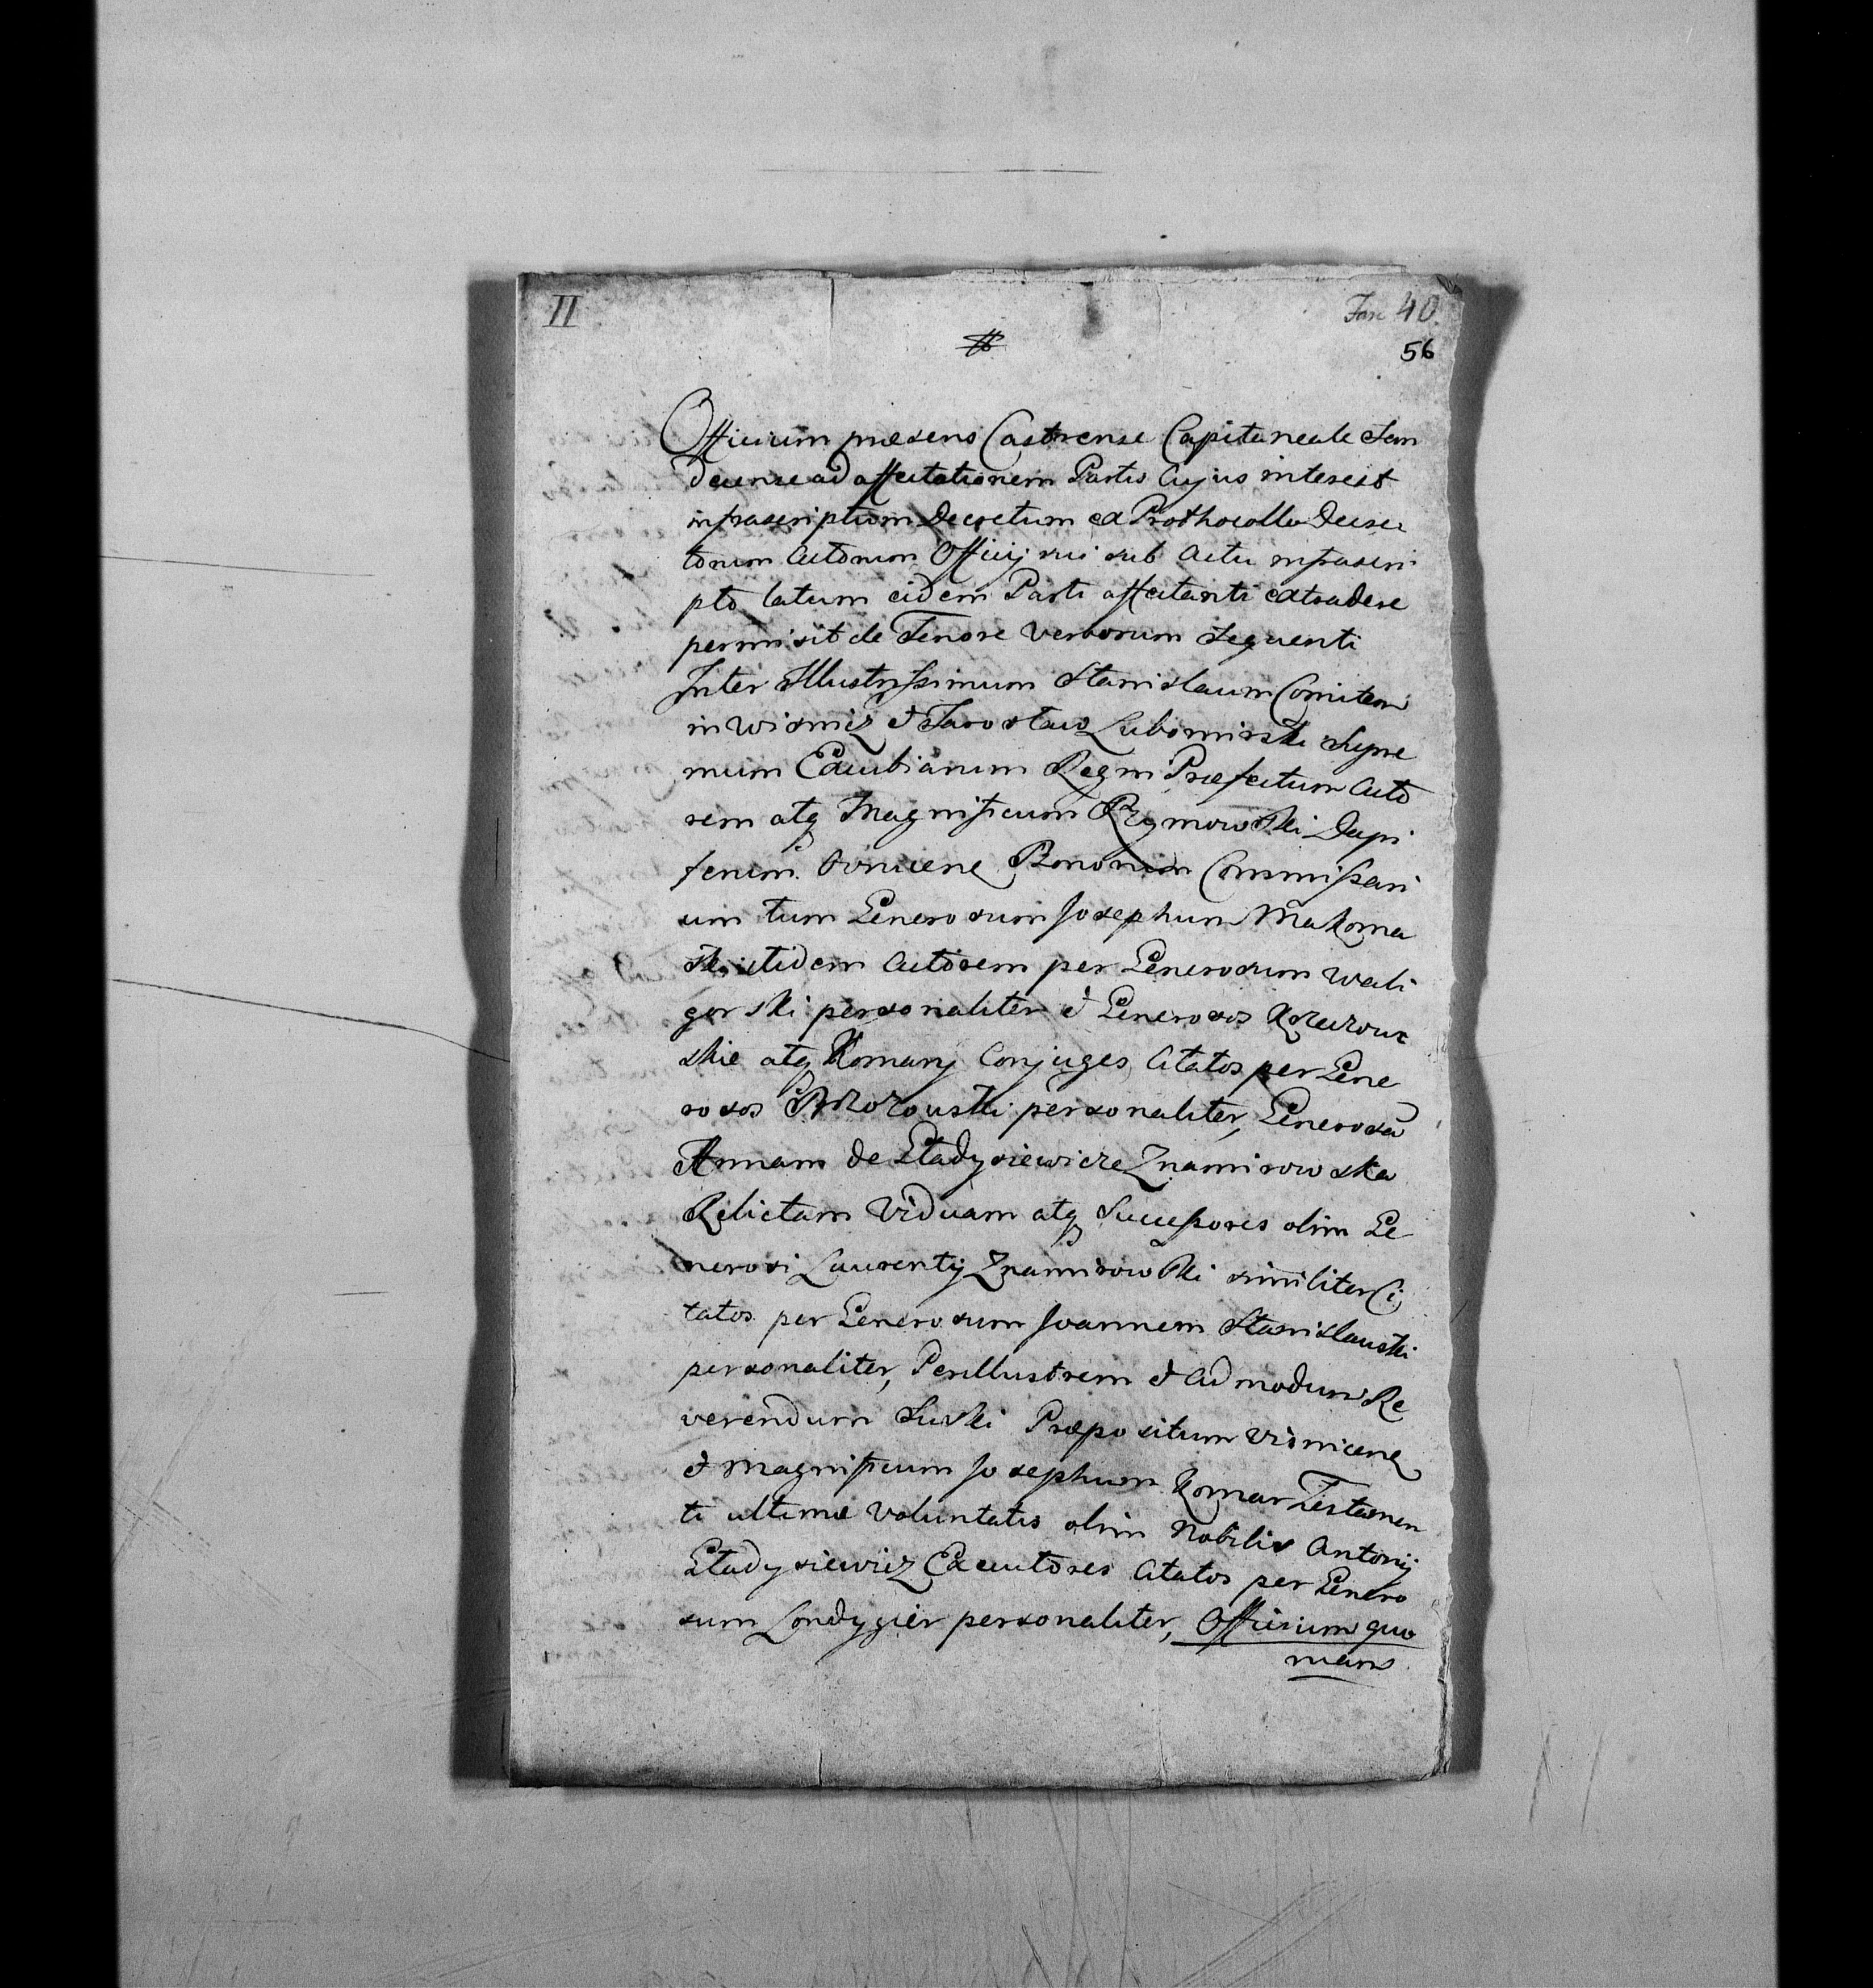 II
Fasc 40.
56
Officium præsens Castrense Capitaneale San
decense ad affectationem Partis Cujus interest
infrascriptum Decretum ex Prothocollo Decre
torum Actorum Officij sui sub Actu infrascri
pto latum eidem Parti affectanti extradere
permisit de Tenore Verborum Sequenti
Inter Illustrissimum Stanislaum Comitem
in Wisnicz et Jarosław Lubomirski Supre
mum Excubiarum Regni Præfectum Acto
rem atq Magnificum Rzymowski Dapi
ferum Bonorum Commissari
um tum Generosum Josephum Makoma
ski itidem Actorem per Generosum Wali
gorski personaliter et Generosos
skie atq Komary Conjuges Citatos per Gene
rosos personaliter, Generosã
Annam de Gładysiewicze Znamirowska
Relictam Viduam atq Successores olim Ge
nerosi Laurentij Znamirowski similiter Ci
tatos per Generosum Joannem Stanisławski
personaliter, Perillustrem et Admodum Re
verendum Suski Præpositum Visnicens
et Magnificum Josephum Komar Testamen
ti ultimæ Voluntatis olim Nobilis Antonij
Gładysiewicz Executores Citatos per Genero
sum Londygier personaliter, Officium quo
niam